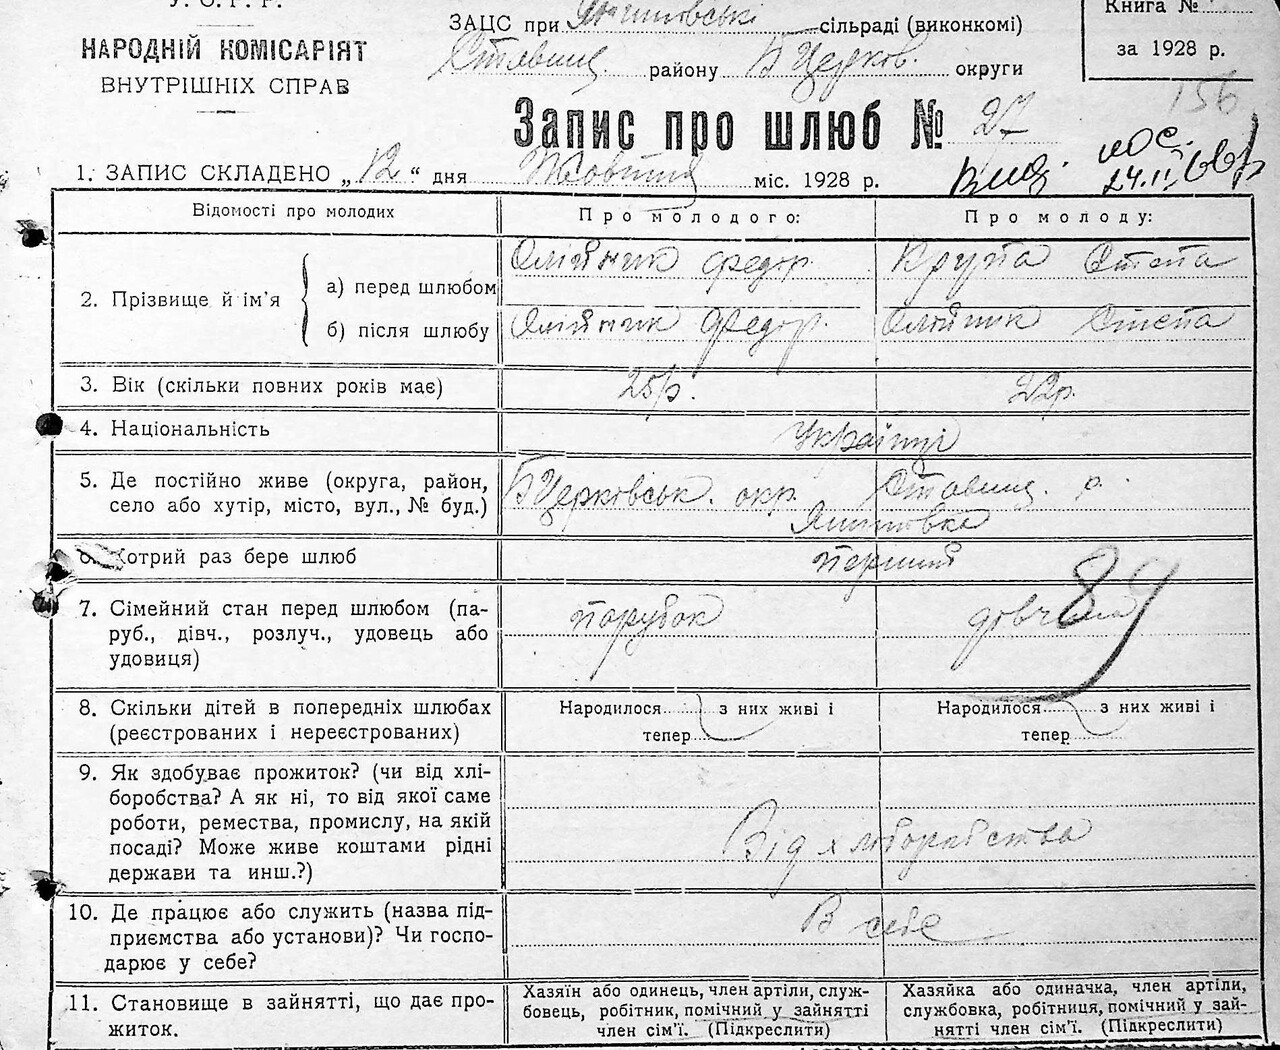 У. С. Р. Р.
НАРОДНІЙ КОМІСАРІЯТ
ВНУТРІШНІХ СПРАВ
ЗАЦС при сільраді (виконкомі)
Ставищ. району Б Церков. округи
Книга №
за 1928 р.
156
Запис про шлюб № 27
1. ЗАПИС СКЛАДЕНО „12“ дня Жовтня міс. 1928 р.
Відомості про молодих
Про молодого:
Про молоду:
2. Прізвище й ім'я
а) перед шлюбом
Олійник Федор
Крупа Степа
б) після шлюбу
Олійник Федор.
Олійник Степа
3. Вік (скільки повних років має)
25 р.
22 р.
4. Національність
Українці
5. Де постійно живе (округа, район,
село або хутір, місто, вул., № буд.)
Б Церковськ. окр. Ставищ. р.
6. Котрий раз бере шлюб
перший
7. Сімейний стан перед шлюбом (па-
руб., дівч., розлуч., удовець або
удовиця)
парубок
дівчина
89
8. Скільки дітей в попередніх шлюбах
(реєстрованих і нереєстрованих)
Народилося з них живі і
тепер
Народилося з них живі і
тепер
9. Як здобуває прожиток? (чи від хлі-
боробства? А як ні, то від якої саме
роботи, ремества, промислу, на якій
посаді? Може живе коштами рідні
держави та инш.?)
Від хліборобства
10. Де працює або служить (назва під-
приємства або установи)? Чи госпо-
дарює у себе?
В себе
11. Становище в зайнятті, що дає про-
житок.
Хазяїн або одинець, член артіли, служ-
бовець, робітник, помічний у зайнятті
член сім'ї. (Підкреслити)
Хазяйка або одиначка, член артіли,
службовка, робітниця, помічний у зай-
нятті член сім'ї. (Підкреслити)